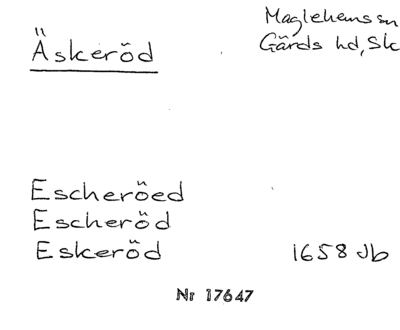 Äskeröd
Maglehems sn
Gärds hd, Sk
Escheröed
Escheröd
Eskeröd 1658 Jb
Nr 17647